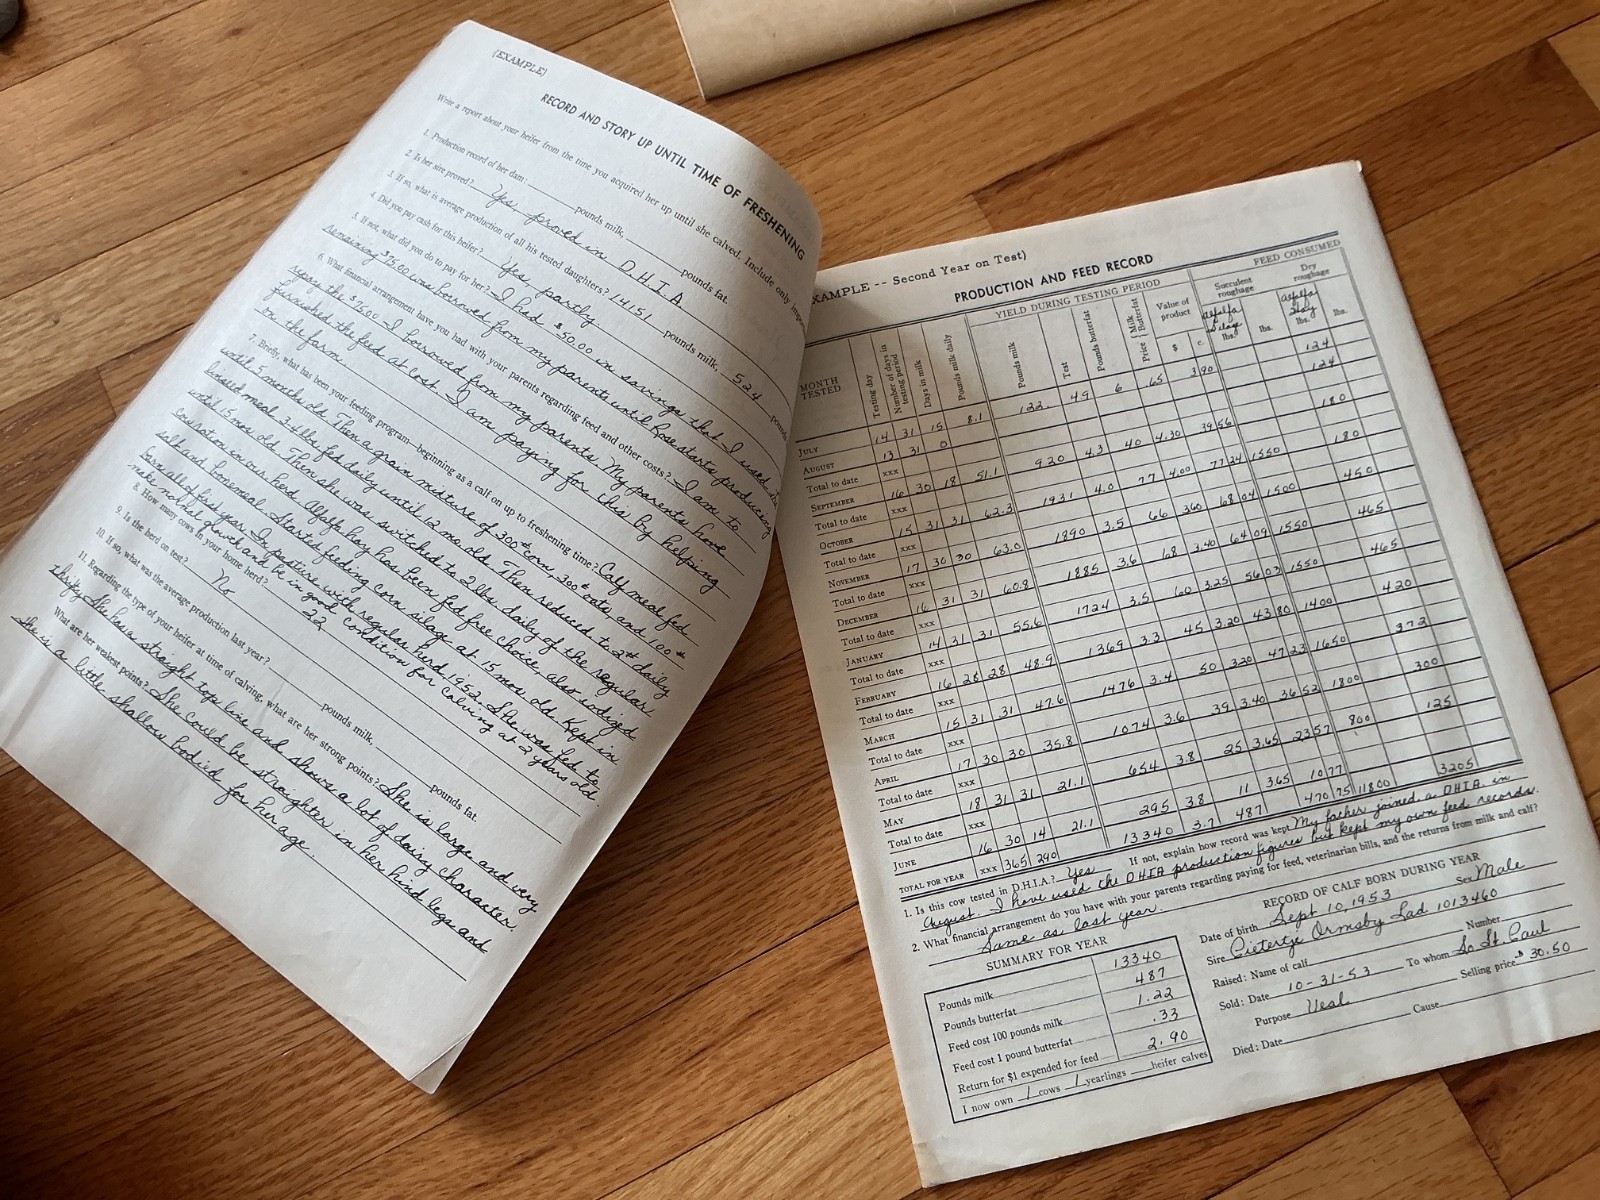 (EXAMPLE)
RECORD AND STORY UP UNTIL TIME OF FRESHENING
Write a report about your heifer from the time you acquired her up until she calved. Include only
1. Production record of her dam: pounds milk, pounds fat.
2. Is her sire proved? Yes, proved in D.H.I.A.
3. If so, what is average production of all his tested daughters? 14151 pounds milk, 524 pounds
4. Did you pay cash for this heifer? Yes, partly
5. If not, what did you do to pay for her? I had $50.00 in savings that I used. The
remaining $75.00 was borrowed from my parents until Rose starts producing
6. What financial arrangement have you had with your parents regarding feed and other costs? I am to
repay the $75.00 I borrowed from my parents. My parents have
furnished the feed at cost. I am paying for this by helping
on the farm.
7. Briefly, what has been your feeding program—beginning as a calf on up to freshening time? Calf meal fed
until 5 months old. Then a grain mixture of 300# corn, 300# oats, and 100#
linseed meal. 3-4 lbs fed daily until 12 mo. old. Then reduced to 2# daily
until 15 mos. old. Then she was switched to 2 lbs. daily of the regular
cow ration in our herd. Alfalfa hay has been fed free choice, also iodized
salt and bonemeal. Started feeding corn silage at 15 mos. old. Kept in
barn all of first year. In pasture with regular herd, 1952. She was fed to
make normal growth and be in good condition for calving at 2 years old
8. How many cows in your home herd? 22
9. Is the herd on test? No
10. If so, what was the average production last year? pounds milk, pounds fat.
11. Regarding the type of your heifer at time of calving, what are her strong points? She is large and very
thrifty. She has a straight top line and shows a lot of dairy character.
What are her weakest points? She could be straighter in her hind legs and
she is a little shallow bodied for her age.
EXAMPLE -- Second Year on Test)
PRODUCTION AND FEED RECORD
YIELD DURING TESTING PERIOD FEED CONSUMED
MONTH TESTED
Testing day
Number of days in testing period
Days in milk
Pounds milk daily
Pounds milk
Test
Pounds butterfat
Price { Milk Butterfat
Value of product
$ c.
Succulent roughage
Alfalfa silage
lbs.
lbs.
Dry roughage
Alfalfa Hay
lbs.
lbs.
JULY 14 31 15 8.1 122 4.9 6 65 3 90 124
AUGUST 13 31 0 124
Total to date xxx
SEPTEMBER 16 30 18 51.1 920 4.3 40 4.30 39 56 180
Total to date xxx
OCTOBER 15 31 31 62.3 1931 4.0 77 4.00 77 24 1550 180
Total to date xxx
NOVEMBER 17 30 30 63.0 1890 3.5 66 360 68 04 1500 450
Total to date xxx
DECEMBER 16 31 31 60.8 1885 3.6 68 3.40 64 09 1550 465
Total to date xxx
JANUARY 14 31 31 55.6 1724 3.5 60 3.25 56 03 1550 465
Total to date xxx
FEBRUARY 16 28 28 48.9 1369 3.3 45 3.20 43 80 1400 420
Total to date xxx
MARCH 15 31 31 47.6 1476 3.4 50 320 47 23 1650 372
Total to date xxx
APRIL 17 30 30 35.8 1074 3.6 39 3.40 36 52 1800 300
Total to date xxx
MAY 18 31 31 21.1 654 3.8 25 3.65 23 57 800 125
Total to date xxx
JUNE 16 30 14 21.1 295 3.8 11 3.65 10 77
TOTAL FOR YEAR xxx 365 290 13340 3.7 487 470 75 11800 3205
1. Is this cow tested in D.H.I.A.? Yes If not, explain how record was kept My father joined a DHIA in
August. I have used the DHIA production figures but kept my own feed records.
2. What financial arrangement do you have with your parents regarding paying for feed, veterinarian bills, and the returns from milk and calf?
Same as last year.
SUMMARY FOR YEAR
Pounds milk 13340
Pounds butterfat 487
Feed cost 100 pounds milk 1.22
Feed cost 1 pound butterfat .33
Return for $1 expended for feed 2.90
I now own 1 cows 1 yearlings heifer calves
RECORD OF CALF BORN DURING YEAR
Date of birth Sept 10, 1953 Sex Male
Sire Pietertje Ormsby Lad 1013460
Raised: Name of calf Number
Sold: Date 10-31-53 To whom So St. Paul
Purpose Veal Selling price $30.50
Died: Date Cause